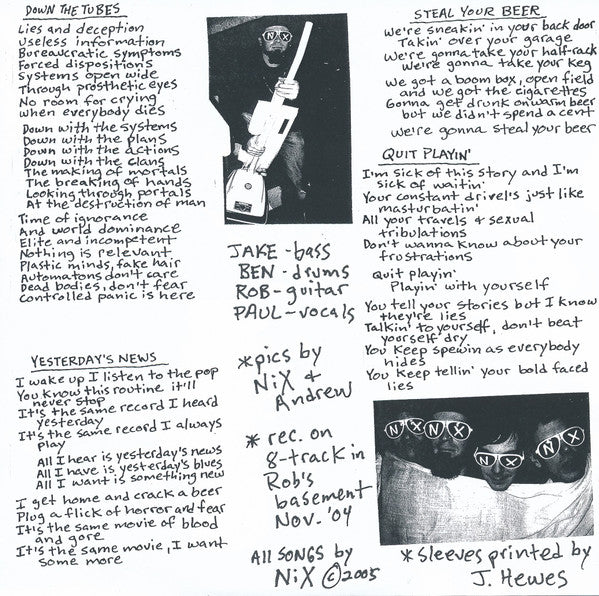 DOWN THE TUBES
Lies and deception
Useless information
Bureaucratic symptoms
Forced dispositions
Systems open wide
Through prosthetic eyes
No room for crying
when everybody dies
Down with the systems
Down with the plans
Down with the actions
Down with the clans
The making of mortals
The breaking of hands
Looking through portals
At the destruction of man
Time of ignorance
And world dominance
Elite and incompetent
Nothing is relevant
Plastic minds, fake hair
Automatons don't care
Dead bodies, don't fear
Controlled panic is here
YESTERDAY'S NEWS
I wake up I listen to the pop
You know this routine it'll
never stop
It's the same record I heard
yesterday
It's the same record I always
play
All I hear is yesterday's news
All I have is yesterday's blues
All I want is something new
I get home and crack a beer
Plug a flick of horror and fear
It's the same movie of blood
and gore
It's the same movie, I want
some more
NX
JAKE - bass
BEN - drums
ROB - guitar
PAUL - vocals
*pics by
NiX &
Andrew
* rec. on
8-track in
Rob's
basement
Nov. '04
All SONGS by
NiX © 2005
STEAL YOUR BEER
We're sneakin' in your back door
Takin' over your garage
We're gonna take your half-rack
we're gonna take your keg
We got a boom box, open field
and we got the cigarettes
Gonna get drunk on warm beer
but we didn't spend a cent
we're gonna steal your beer
QUIT PLAYIN'
I'm sick of this story and I'm
sick of waitin'
Your constant drivel's just like
masturbatin'
All your travels & sexual
tribulations
Don't wanna know about your
frustrations
Quit playin'
Playin' with yourself
You tell your stories but I know
they're lies
Talkin' to yourself, don't beat
yourself dry
You keep spewin as everybody
hides
You keep tellin' your bold faced
lies
NX
NX
NX
NX
*sleeves printed by
J. Hewes